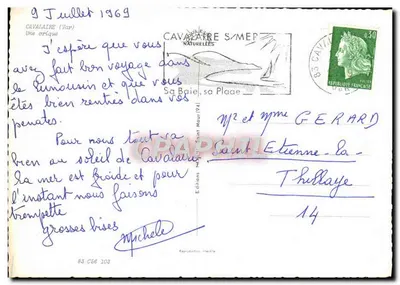 9 Juillet 1969
CAVALAIRE (Var)
Une crique
J'espère que vous
avez fait bon voyage dans
le Limousin et que vous
êtes bien rentrés dans vos
penates.
Pour nous tout va
bien au soleil de Cavalaire
la mer est froide et pour
l'instant nous faisons
trempette
grosses bises
Michele
CAVALAIRE S/MER
NATURELLES
Sa Baie, sa Plage
83 CAV
0,30
REPUBLIQUE FRANCAISE
Mr et Mme GERARD
Saint Etienne-la-
Thillaye
14
CPAPHIL